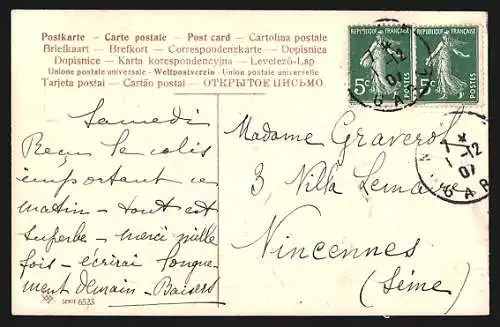 Postkarte – Carte postale – Post card – Cartolina postale
Briefkaart – Brefkort – Correspondenzkarte – Dopisnica
Dopisnice – Karta korespondencyjna – Levelező-Lap
Unione postale universale - Weltpostverein - Union postale universelle
Tarjeta postal – Cartão postal – ОТКРЫТОЕ ПИСЬМО.
REPUBLIQUE FRANÇAISE
REPUBLIQUE FRANÇAISE
5c
5c
POSTES
12
07
GAR
Samedi
Reçu le colis
important ce
matin – tout est
superbe – merci mille
fois – écrirai longue-
ment demain – Baisers
SERIE 6523
Madame Graverol
3, Villa Lemaire
Vincennes
(Seine)
1-12
07
GAR